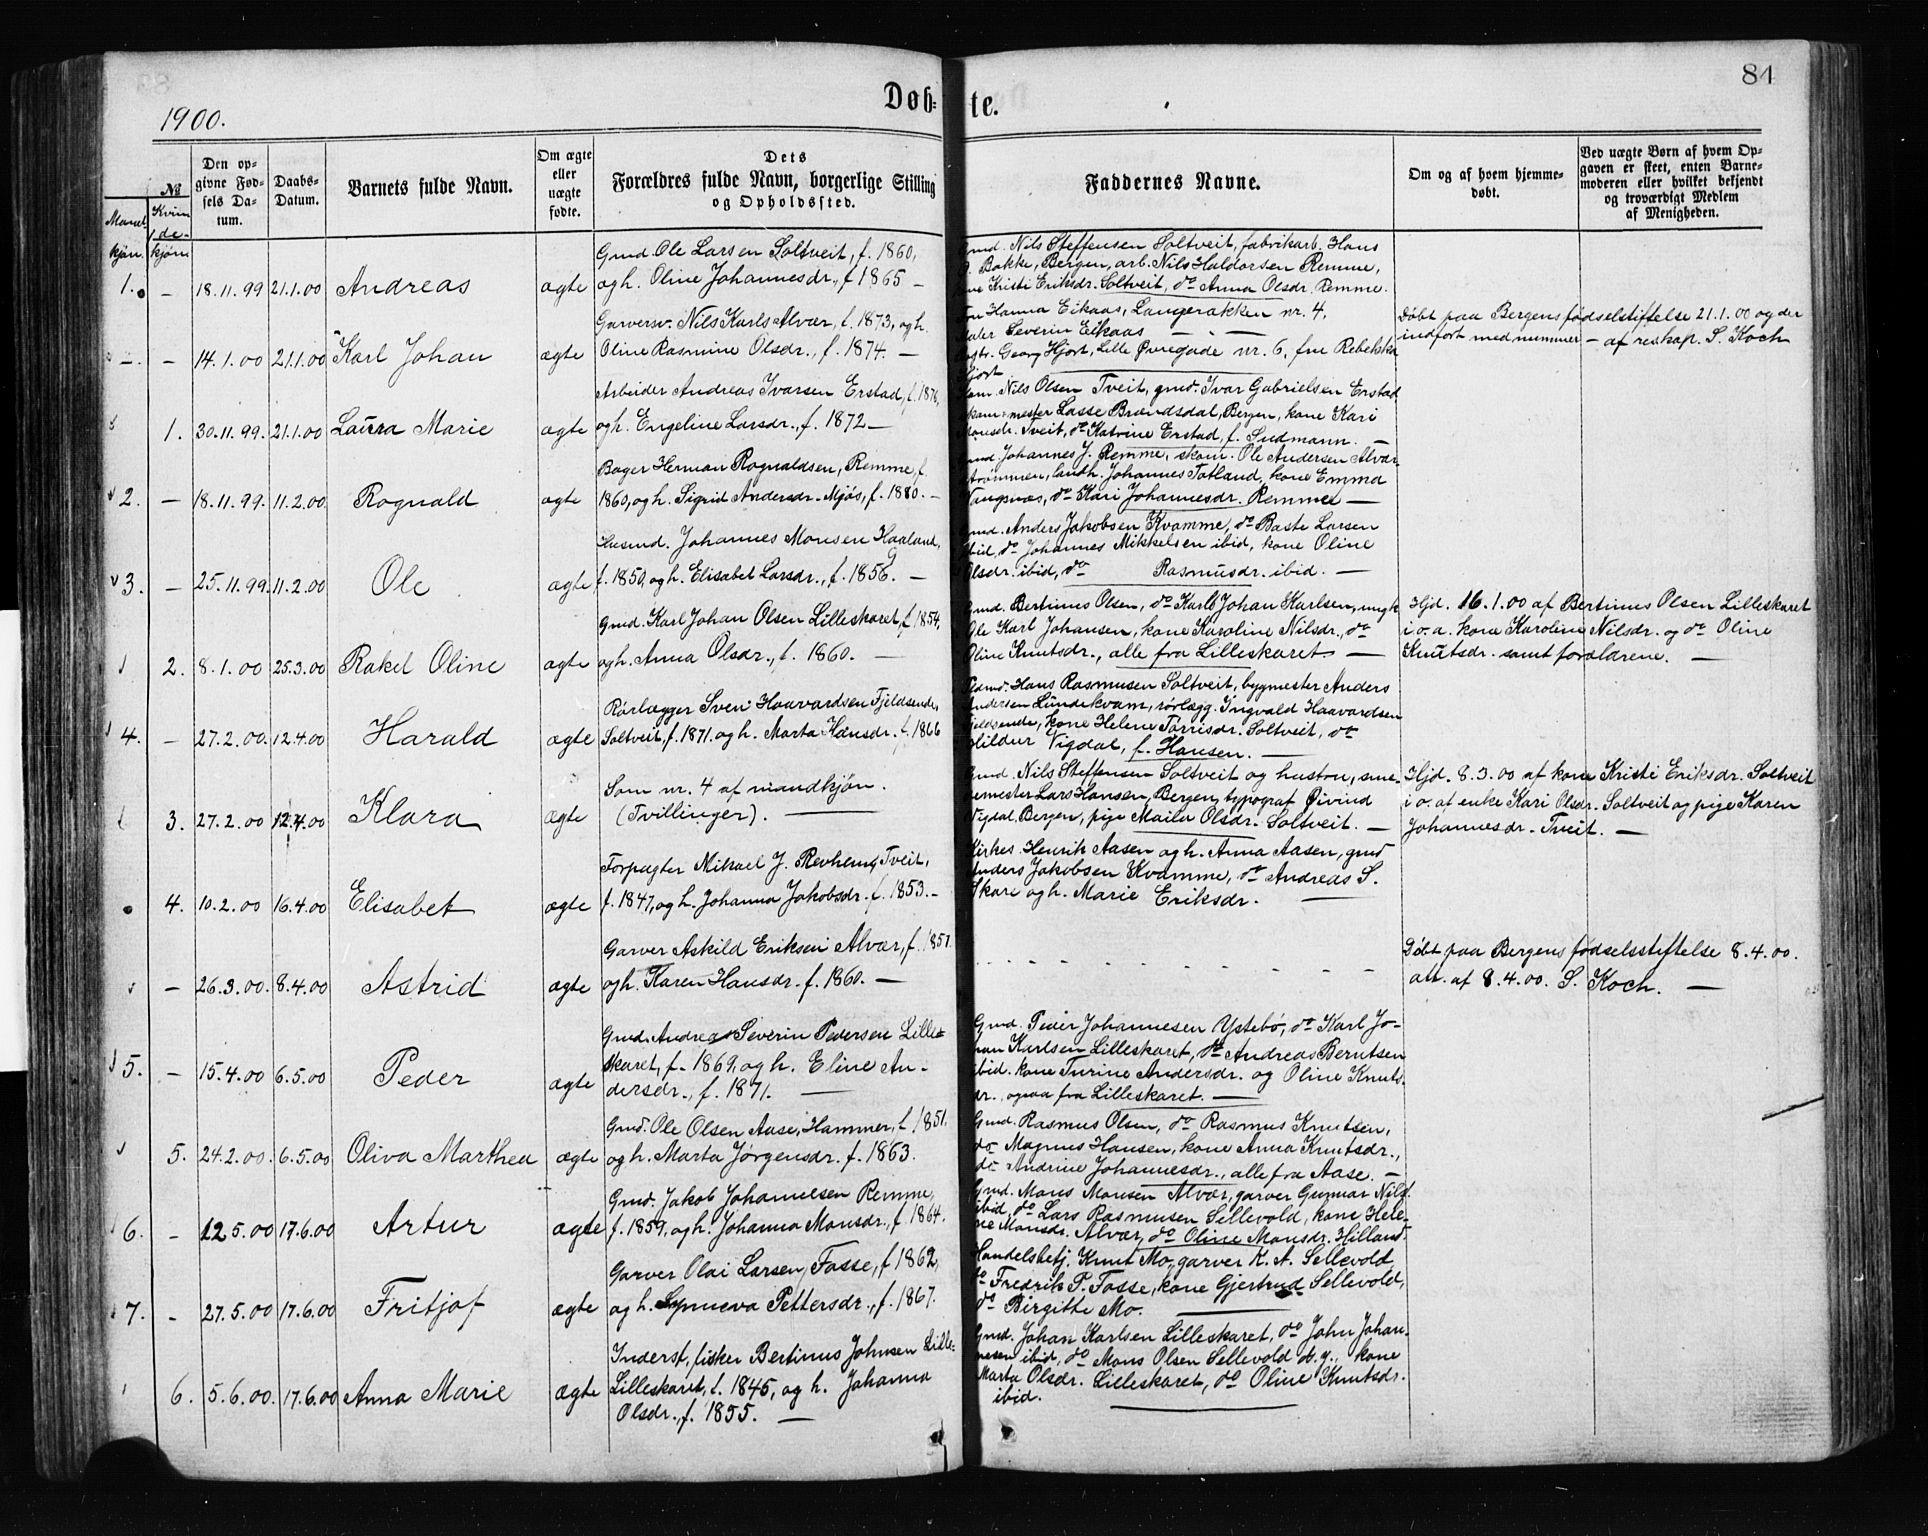 84
Døb-te.
1900.
№
Mandkjøn
Kvindekjøn
Den opgivne Fødsels Datum.
Daabs-Datum.
Barnets fulde Navn.
Om ægte eller uægte fødte.
Dets Forældres fulde Navn, borgerlige Stilling og Opholdssted.
Faddernes Navne.
Om og af hvem hjemmedøbt.
Ved uægte Børn af hvem Opgaven er skeet, enten Barnemoderen eller hvilket bekjendt og troværdigt Medlem af Menigheden.
1. – 18.11.99 21.1.00 Andreas ægte
Gmd. Ole Larsen Soltveit, f. 1860,
og h. Oline Johannesdr., f. 1865 –
Gmd. Nils Steffensen Soltveit, fabrikarb. Hans
Bakke, Bergen, arb. Nils Haldorsen Remme,
Kristi Eriksdr. Soltveit, do Anna Olsdr. Remme.
– – 14.1.00 21.1.00 Karl Johan ægte
Garversv. Nils Karls. Alvær, f. 1873, og h.
Oline Rasmine Olsdr., f. 1874. –
Hanna Eikaas, Langerækken nr. 4,
Severin Eikaas – . –
Georg Hjort, Lille Øvregade nr. 6, fru Rebekka
Hjort
Døbt paa Bergens fødselstiftelse 21.1.00 og der
indført med nummer – af reskap. S. Koch
1. 30.11.99. 21.1.00 Laura Marie ægte
Arbeider Andreas Ivarsen Erstad, f. 1876,
og h. Engeline Larsdr., f. 1872 –
Nils Olsen Tveit, gmd. Ivar Gabrielsen Erstad
mester Lasse Brandsdal, Bergen, kone Kari
Monsdr. Tveit, do Katrine Erstad, f. Sudmann. –
2. – 18.11.99. 11.2.00 Rognald ægte
Bager Herman Rognaldsen, Remme, f.
1860, og h. Sigrid Andersdr. Mjøs, f. 1880. –
Gmd. Johannes J. Remme, skom. Ole Andersen Alvær
strømmen, landh. Johannes Totland, kone Emma
Vangsnæs, do Kari Johannesdr. Remme –
3. – 25.11.99. 11.2.00 Ole ægte
Husmd. Johannes Monsen Haaland,
f. 1850, og h. Elisabet Larsdr., f. 1856. –
Gmd. Anders Jakobsen Kvamme, do Baste Larsen
ibid, do Johannes Mikkelsen ibid, kone Oline
Olsdr. ibid, do Rasmusdr. ibid. –
2. 8.1.00 25.3.00 Rakel Oline ægte
Gmd. Karl Johan Olsen Lilleskaret, f. 1854,
og h. Anna Olsdr., f. 1860. –
Gmd. Bertinus Olsen, do Karl Johan Karlsen, ungk.
Ole Karl Johansen, kone Karoline Nilsdr., do
Oline Knutsdr., alle fra Lilleskaret –
Hjd. 16.1.00 af Bertinus Olsen Lilleskaret
i o. a. kone Karoline Nilsdr. og do Oline
Knutsdr. samt forældrene. –
4. – 27.2.00. 12.4.00 Harald ægte
Rørlægger Sven Haavardsen Fjeldsende,
Soltveit, f. 1871. og h. Marta Hansdr. f. 1866
Hans Rasmusen Soltveit, bygmester Anders
Andersen Lundekvam, rørlægg. Ingvald Haavardsen
Fjeldsende, kone Helene Torrisdr. Soltveit, do
Hildur Vigdal, f. Hansen. –
3. 27.2.00 12.4.00 Klara ægte
Som nr. 4 af mandkjøn.
(Tvillinger). –
Gmd. Nils Steffensen Soltveit og hustru, sme-
demester Lars Hansen, Bergen, typograf Øivind
Vigdal, Bergen, pige Maila Olsdr. Soltveit. –
Hjd. 8.3.00 af kone Kristi Eriksdr. Soltveit
i o. at enke Kari Olsdr. Soltveit og pige Karen
Johannesdr. Tveit. –
4. 10.2.00 16.4.00 Elisabet ægte
Forpagter Mikael J. Revheim, Tveit,
f. 1847, og h. Johanna Jakobsdr. f. 1853. –
Kirkes. Henrik Aasen og h. Anna Aasen, gmd
Anders Jakobsen Kvamme, do Andreas S.
Skare og h. Marie Eriksdr. –
– 26.3.00. 8.4.00 Astrid ægte
Garver Askild Eriksen Alvær, f. 1857.
og h. Karen Hansdr. f. 1860. –
Døbt paa Bergens fødselsstiftelse 8.4.00.
att. af 8.4.00. S. Koch. –
5. – 15.4.00 6.5.00 Peder ægte
Gmd. Andreas Severin Pedersen Lille-
skaret, f. 1869, og h. Eline An-
dersdr., f. 1871. –
Gmd. Peder Johannesen Ystebø, do Karl Jo-
han Karlsen Lilleskaret, do Andreas Berntsen
ibid. kone Turine Andersdr. og Oline Knuts-
dr., ogsaa fra Lilleskaret. –
5. 24.2.00. 6.5.00 Oliva Marthea ægte
Gmd. Ole Olsen Aase, Hammer, f. 1851.
og h. Marta Jørgensdr. f. 1863.
Gmd. Rasmus Olsen, do Rasmus Knutsen,
do Magnus Hansen, kone Anna Knutsdr.,
do Andrine Johannesdr., alle fra Aase. –
6. – 12.5.00 17.6.00 Artur ægte
Gmd. Jakob Johannesen Remme,
f. 1859, og h. Johanna Monsdr., f. 1864.
Gmd. Mons Monsen Alvær, garver Gunnar Nils.
ibid, do Lars Rasmusen Sellevold, kone Hele-
ne Monsdr. Alvær, do Oline Monsdr. Hilland.
7. – 27.5.00 17.6.00 Fritjof ægte
Garver Olai Larsen, Fosse, f. 1862,
og h. Synneva Pettersdr., f. 1867.
Handelsbetj. Knut Mo, garver K. A. Sellevold,
do Fredrik P. Fosse, kone Gjertrud Sellevold,
do Birgitte Mo.
6. 5.6.00. 17.6.00 Anna Marie ægte
Inderst, fisker Bertinus Johnsen Lille-
Lilleskaret, f. 1845, og h. Johanna
Olsdr., f. 1855. –
Gmd. Johan Karlsen Lilleskaret, do John Johan-
nesen ibid, do Mons Olsen Sellevold d. y., kone
Marta Olsdr. Lilleskaret, do Oline Knutsdr.
ibid.